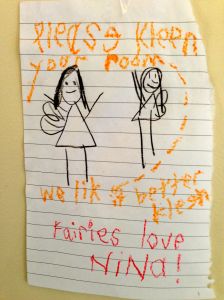 please kleen
your room
we lik it better
kleen
Fairies love
NiNa!